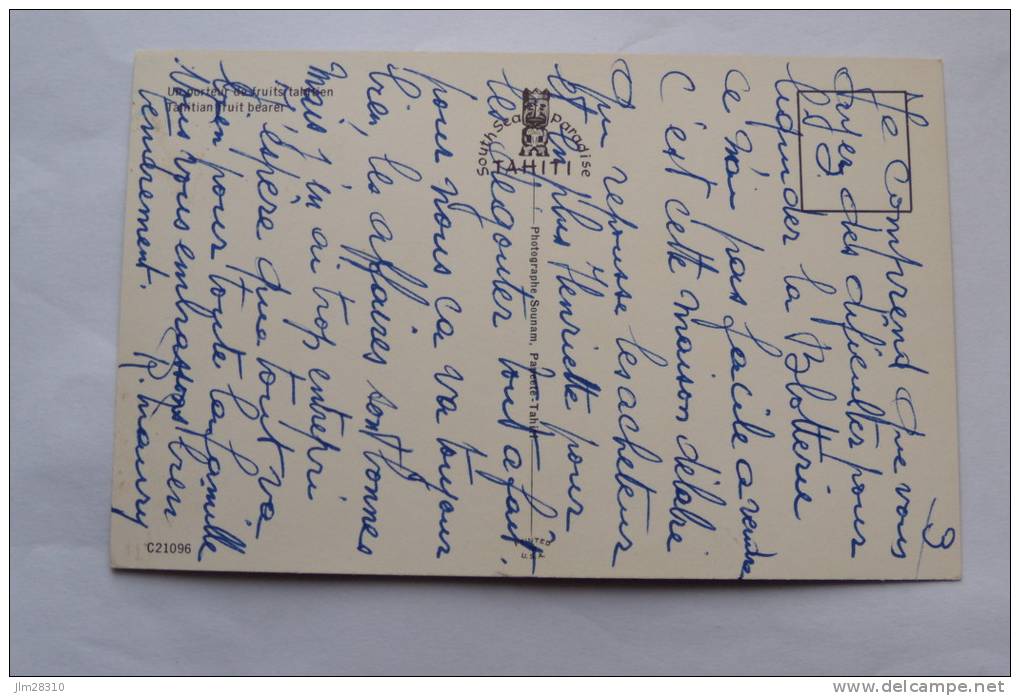 3
Je comprend que vous
ayez des dificultés pour
liquinder la Blotterie
ce n'ai pas facile a vendre
C'est cette maison délabré
qu repousse les acheteur
et plus Henriette pour
les dégouter tout a fait.
pour nous ca va toujour
bien, les affaires sont bonnes
mais j'en ai trop entrepri
j'espère que tout va
bien pour toute la famille
Nous vous embrassons bien
tendrement. R. maury
Un porteur de fruits tahitien
Tahitian fruit bearer
South Sea Paradise
TAHITI
Photographe Sounam, Papeete-Tahiti
PRINTED
U.S.A.
C21096
jlm28310
www.delcampe.net